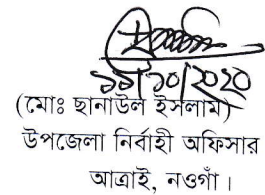 ১৯/১০/২০২০
(মোঃ ছানাউল ইসলাম)
উপজেলা নির্বাহী অফিসার
আত্রাই, নওগাঁ।